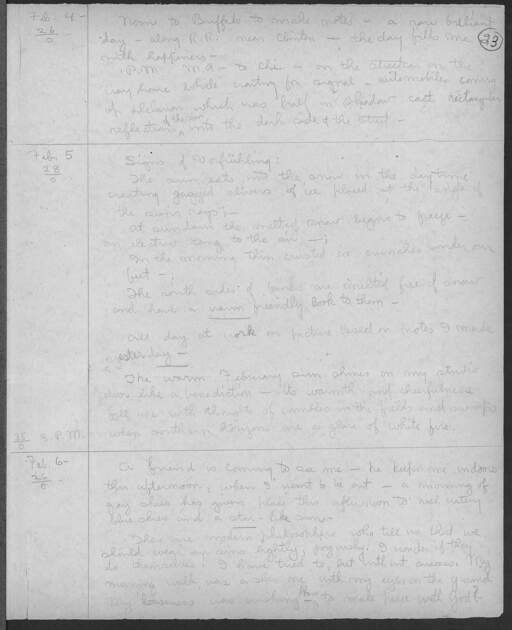 Feb. 4 - Home to Buffalo to make notes - a rare brilliant
26/0 day - along R.R. near Clinton - the day fills me 33
with happiness -
P.M. M.A. - to Chic - on the street on the
way home while waiting for signal - automobiles coming
of which was half in shadow cast rectangular
reflections of the sun into the dark side of the street -
Feb 5 Signs of Vorfrühling:
28/0 The sun eats into the snow in the daytime
creating jagged slivers of ice placed at the angle of
the sun's rays; -
At sundown the melted snow begins to freeze -
an electric tang to the air - ;
In the morning thin crusted ice crunches under our
feet - ;
The north sides of banks are directly free of snow
and have a warm friendly look to them -
All day at work on picture based on notes I made
yesterday -
The warm February sun shines on my studio
like a benediction - its warmth and cheerfulness
fill me with thoughts of rambles in the fields and
28/0 3. P.M. southern horizons are a glare of white fire.
Feb 6 - A friend is coming to see me - he keeps me indoors
26/0 this afternoon, when I want to be out - a morning of
gray skies has given place this afternoon to
blue skies and a star-like sun -
There are modern philosophers who tell us that we
should wear our sins lightly, joyously. I wonder if they
do themselves. I have tried to, but without success. My
morning walk was a with my eyes on the ground
my was wishing How to make peace with God?